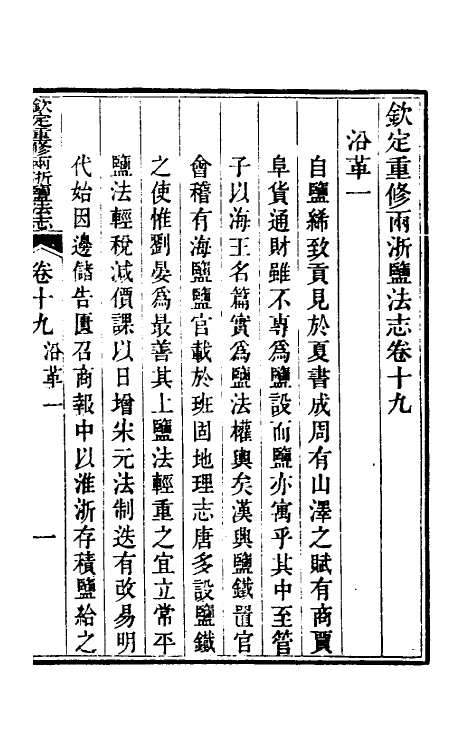 欽定重修兩浙鹽法志卷十九
沿革一
自鹽絺致貢見於夏書成周有山澤之賦有商賈
阜貨通財雖不專爲鹽設而鹽亦寓乎其中至管
子以海王名篇實爲鹽法權輿矣漢興鹽鐵置官
會稽有海鹽鹽官載於班固地理志唐多設鹽鐵
之使惟劉晏爲最善其上鹽法輕重之宜立常平
鹽法輕稅減價課以日增宋元法制迭有改易明
代始因邊儲告匱召商報中以淮浙存積鹽給之
欽定重修兩浙鹽法志
卷十九
沿革一
一